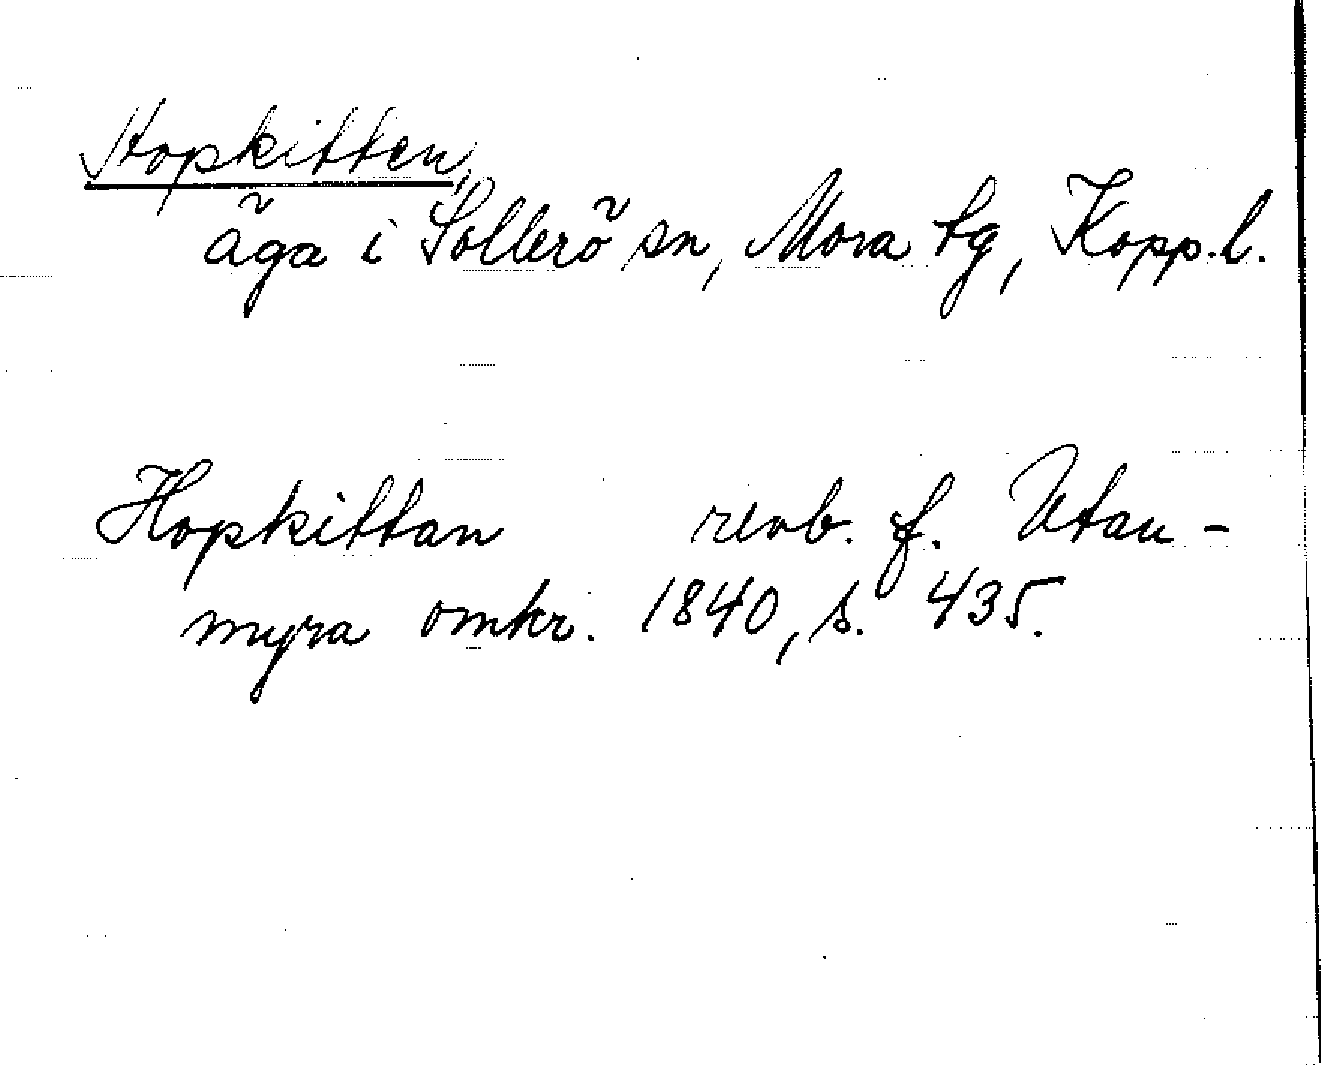 Hopkitten,
äga i Sollerö sn, Mora tg, Kopp.l.
Hopkittan revb. f. Utan-
myra omkr. 1840, s. 435.